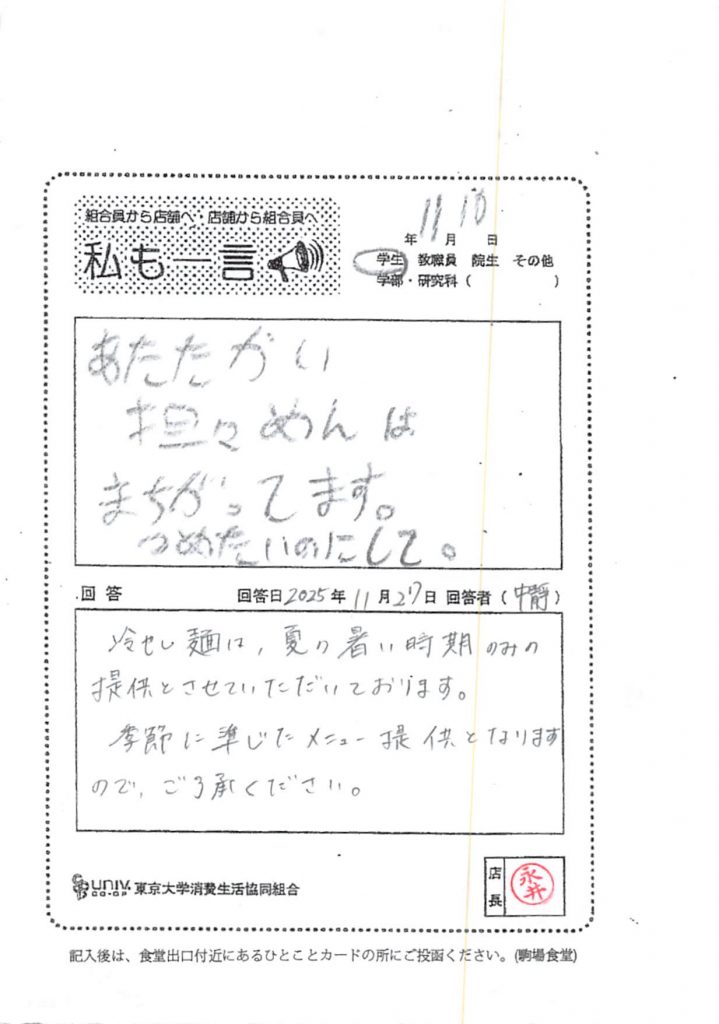 組合員から店舗へ・店舗から組合員へ
私も一言
11 10
年 月 日
学生 教職員 院生 その他
学部・研究科( )
あたたがい
担々めんは
まちがってます。
つめたいのにして。
回答 回答日2025年11月27日 回答者(中静)
冷せし麺は、夏の暑い時期のみの
提供とさせていただいております。
季節に準じたメニュー提供となります
ので、ご了承ください。
店長
永井
UNIV. CO-OP 東京大学消費生活協同組合
記入後は、食堂出口付近にあるひとことカードの所にご投函ください。(駒場食堂)